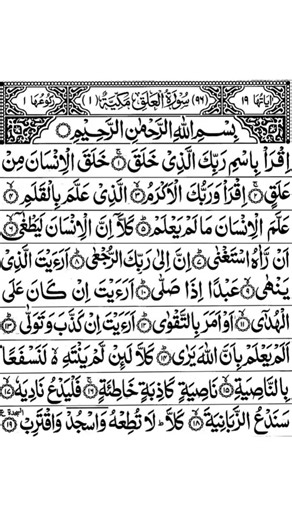 اٰيَاتُهَا ١٩ (٩٦) سُوْرَةُ الْعَلَقِ مَكِّيَّةٌ (١) رُكُوْعُهَا ١
بِسْمِ اللّٰهِ الرَّحْمٰنِ الرَّحِيْمِ
اِقْرَاْ بِاسْمِ رَبِّكَ الَّذِيْ خَلَقَ ۝١ خَلَقَ الْاِنْسَانَ مِنْ
عَلَقٍ ۝٢ اِقْرَاْ وَرَبُّكَ الْاَكْرَمُ ۝٣ الَّذِيْ عَلَّمَ بِالْقَلَمِ ۝٤
عَلَّمَ الْاِنْسَانَ مَا لَمْ يَعْلَمْ ۝٥ كَلَّاۤ اِنَّ الْاِنْسَانَ لَيَطْغٰۤى ۝٦
اَنْ رَّاٰهُ اسْتَغْنٰى ۝٧ اِنَّ اِلٰى رَبِّكَ الرُّجْعٰى ۝٨ اَرَءَيْتَ الَّذِيْ
يَنْهٰى ۝٩ عَبْدًا اِذَا صَلّٰى ۝١٠ اَرَءَيْتَ اِنْ كَانَ عَلَى
الْهُدٰۤى ۝١١ اَوْ اَمَرَ بِالتَّقْوٰى ۝١٢ اَرَءَيْتَ اِنْ كَذَّبَ وَتَوَلّٰى ۝١٣
اَلَمْ يَعْلَمْ بِاَنَّ اللّٰهَ يَرٰى ۝١٤ كَلَّا لَئِنْ لَّمْ يَنْتَهِ ەۙ لَنَسْفَعًۢا
بِالنَّاصِيَةِ ۝١٥ نَاصِيَةٍ كَاذِبَةٍ خَاطِئَةٍ ۝١٦ فَلْيَدْعُ نَادِيَهٗ ۝١٧
سَنَدْعُ الزَّبَانِيَةَ ۝١٨ كَلَّا ؕ لَا تُطِعْهُ وَاسْجُدْ وَاقْتَرِبْ ۝١٩ السجدة